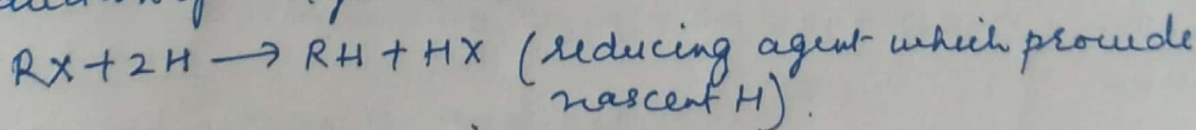 RX + 2H → RH + HX (reducing agent which provide
nascent H).